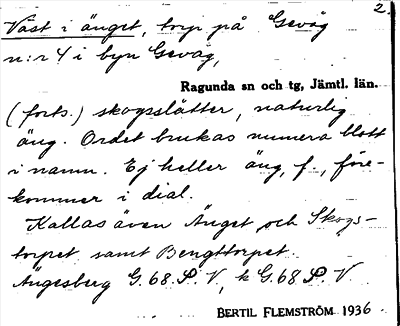 2.
Väst i änget, torp på Gevåg
n:r 4 i byn Gevåg,
Ragunda sn och tg, Jämtl. län.
(forts.) skogsslåtter, naturlig
äng. Ordet brukas numera blott
i namn. Ej heller äng, f., före-
kommer i dial.
Kallas även Änget och Skogs-
torpet samt Bengttorpet.
Ängesberg G. 68. S. V, k G. 68 S. V
BERTIL FLEMSTRÖM 1936